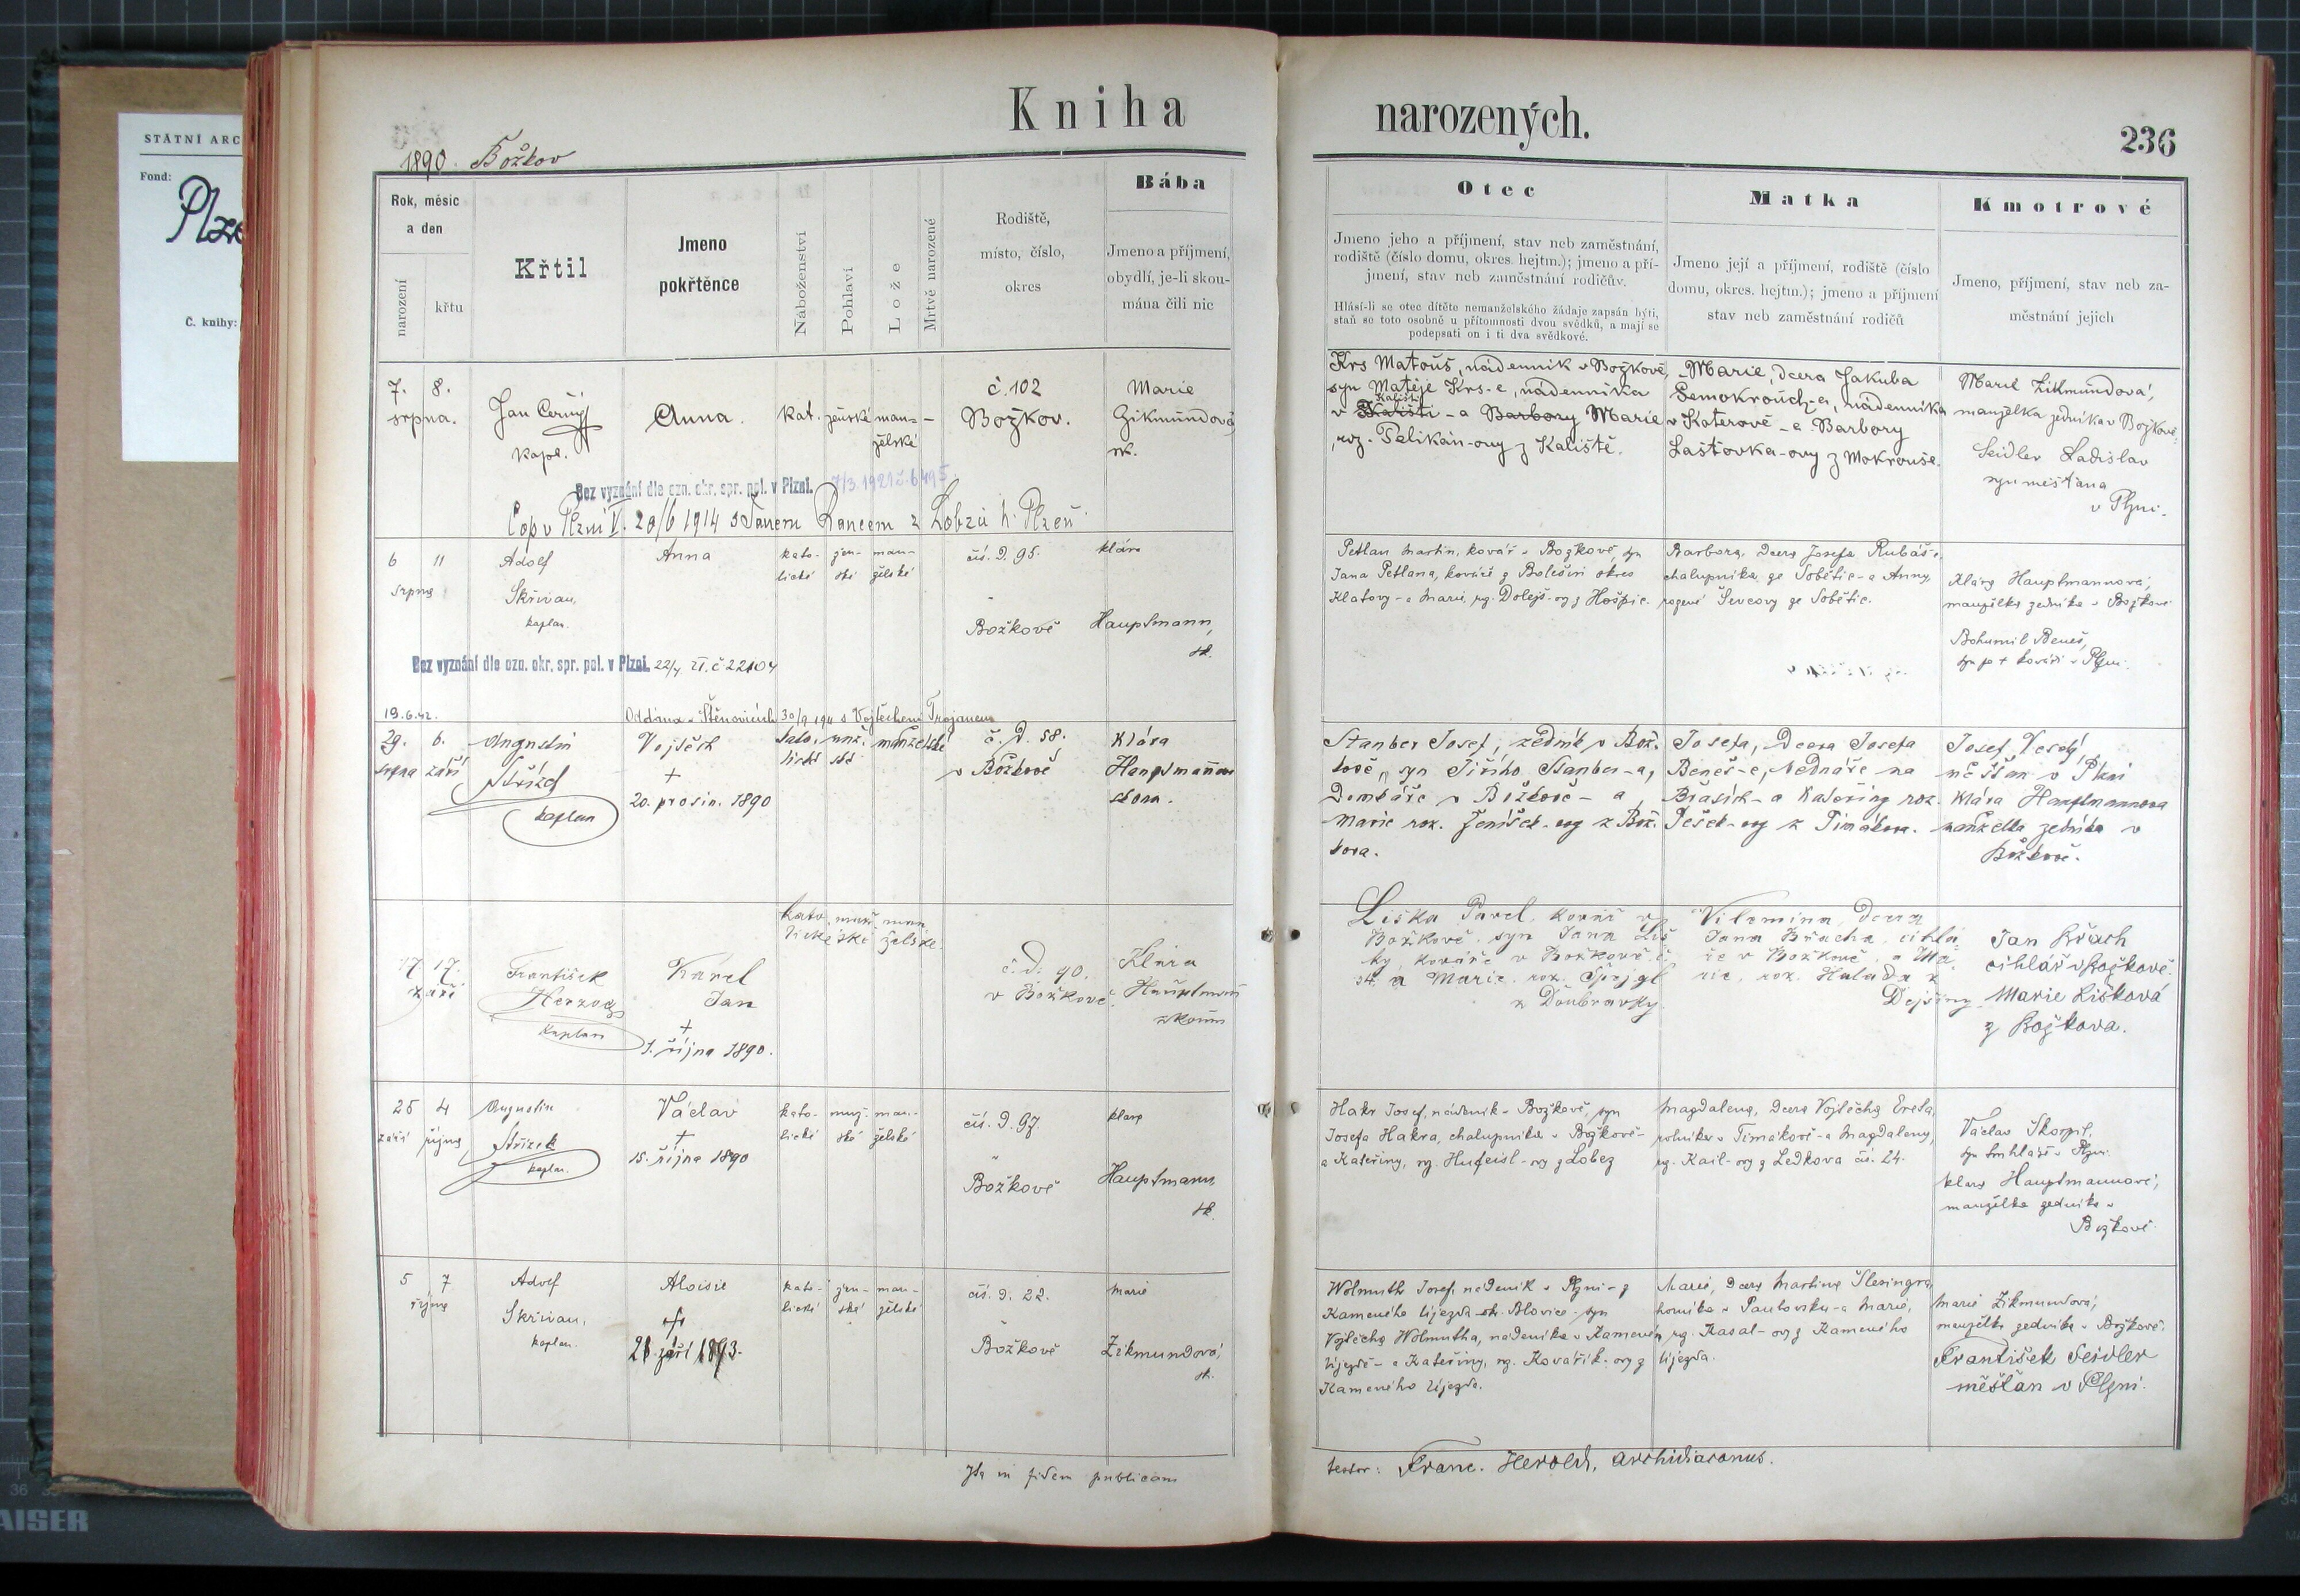 STÁTNÍ ARC
Fond:
Plze
Č. knihy:
Kniha
narozených.
236
1890. Božkov
Rok, měsíc
a den
narození
křtu
Křtil
Jmeno
pokřtěnce
Náboženství
Pohlaví
Lože
Mrtvě narozené
Rodiště,
místo, číslo,
okres
Bába
Jmeno a příjmení,
obydlí, je-li skou-
mána čili nic
Otec
Jmeno jeho a příjmení, stav neb zaměstnání,
rodiště (číslo domu, okres. hejtm.); jmeno a pří-
jmení, stav neb zaměstnání rodičův.
Hlásí-li se otec dítěte nemanželského žádaje zapsán býti,
staň se toto osobně u přítomnosti dvou svědků, a mají se
podepsati on i ti dva svědkové.
Matka
Jmeno její a příjmení, rodiště (číslo
domu, okres. hejtm.); jmeno a příjmení
stav neb zaměstnání rodičů
Kmotrové
Jmeno, příjmení, stav neb za-
městnání jejich
7. 8.
srpna.
Jan Černý
kapl.
Anna.
kat. ženské man-
želské
č. 102
Božkov.
Marie
Zikmundová
zk.
Krs Matouš, nádenník v Božkově,
syn Matěje Krs-e, nádenníka
v Kališti - a Barbory Marie
roz. Pelikán-ovy z Kaliště.
Marie, dcera Jakuba
Šemokrouch-a, nádenníka
v Koterově - a Barbory
Laštovka-ovy z Mokrouše.
Marie Zikmundová,
manželka zedníka v Božkově.
Seidler Ladislav
syn měšťana
v Plzni.
Bez vyznání dle ozn. okr. spr. pol. v Plzni. 7/3. 1921 č. 6495
Cop v Plzni V. 20/6 1914 s Janem Rancem z Lobzů h. Plzeň
6 11
srpna
Adolf
Skřivan,
kaplan.
Anna
kato- žen- man-
lické ské želské
čís. d. 95.
Božkově
Klára
Hauptmann,
zk.
Petlan Martin, kovář v Božkově, syn
Jana Petlana, kováře z Bolešin okres
Klatovy - a Marie, rz. Dolejš-ovy z Hošpic.
Barbora, dcera Josefa Rubáš-e,
chalupníka ze Sobětic - a Anny,
rozené Ševcovy ze Sobětic.
Klára Hauptmannová,
manželka zedníka v Božkově
Bohumil Beneš,
syn po + kováři v Plzni.
Bez vyznání dle ozn. okr. spr. pol. v Plzni. 22/4 21. č 22104
19.6.42.
Oddána v Štěnovicích 30/9 1911 s Vojtěchem Trojanem
29. 6.
srpna září
Augustin
Střízek
kaplan
Vojtěch
+
20. prosin. 1890
kato- muž. manželské
lické ské
č. d. 58.
v Božkově
Klára
Hauptmannova
zkom.
Stanber Josef, zedník v Bož-
kově, syn Jiřího Stanber-a,
v Božkově - a
Marie roz. Ženíšek-ovy z Bož-
kova.
Josefa, dcera Josefa
Beneš-e, bednáře na
Brašich - a Kateřiny roz.
Pešek-ovy z Timákova.
Josef Veselý,
měšťan v Plzni
Klára Hauptmannova
manželka zedníka v
Božkově.
17 17.
září
František
Herzog
kaplan
Karel
Jan
+
1. října 1890.
kato- muž- man-
lické ské želské
č. d. 90.
v Božkově.
Klára
Hauptmann
zkoum
Liška Pavel, kovář v
Božkově, syn Jana Liš-
ky, kováře v Božkově č.
34 a Marie, roz. Špojgl
z Doubravky.
Vilemina, dcera
Jana Břacha, cihlá-
ře v Božkově, a Ma-
rie, roz. Hulada z
Dejšiny
Jan Břach
cihlář v Božkově.
Marie Lišková
z Božkova.
25 4
září října
Augustin
Střízek
kaplan.
Václav
+
15. října 1890
kato- muž- man-
lické ské želské
čís. d. 97.
Božkově
Klara
Hauptmann,
zk.
Hakr Josef, nádeník v Božkově, syn
Josefa Hakra, chalupníka v Božkově -
a Kateřiny, rz. Hufeisl-ovy z Lobez
Magdalena, dcera Vojtěcha Ereta,
rolníka v Timákově - a Magdaleny,
rz. Kail-ovy z Ledkova čís. 24.
Václav Škorpil,
syn truhláře v Plzni.
Klara Hauptmannová,
manželka zedníka v
Božkově.
5 7
října
Adolf
Skřivan,
kaplan.
Aloisie
+
21. září 1893.
kato- žen- man-
lické ské želské
čís. d. 22.
Božkově
Marie
Zikmundová,
zk.
Wolmuth Josef, nádeník v Plzni - z
Kamenného Újezda ok. Blovice - syn
Vojtěcha Wolmutha, nádeníka v Kamenném
Újezdě - a Kateřiny, rz. Kovařík-ovy z
Kameného Újezda.
Marie, dcera Martina Šlezingra,
horníka v Pavlovsku - a Marie,
rz. Kasal-ovy z Kameného
Újezda.
Marie Zikmundová,
manželka zedníka v Božkově.
František Seidler
měšťan v Plzni.
Ita in fidem publicam
testor: Franc. Herold, archidiaconus.
AISER